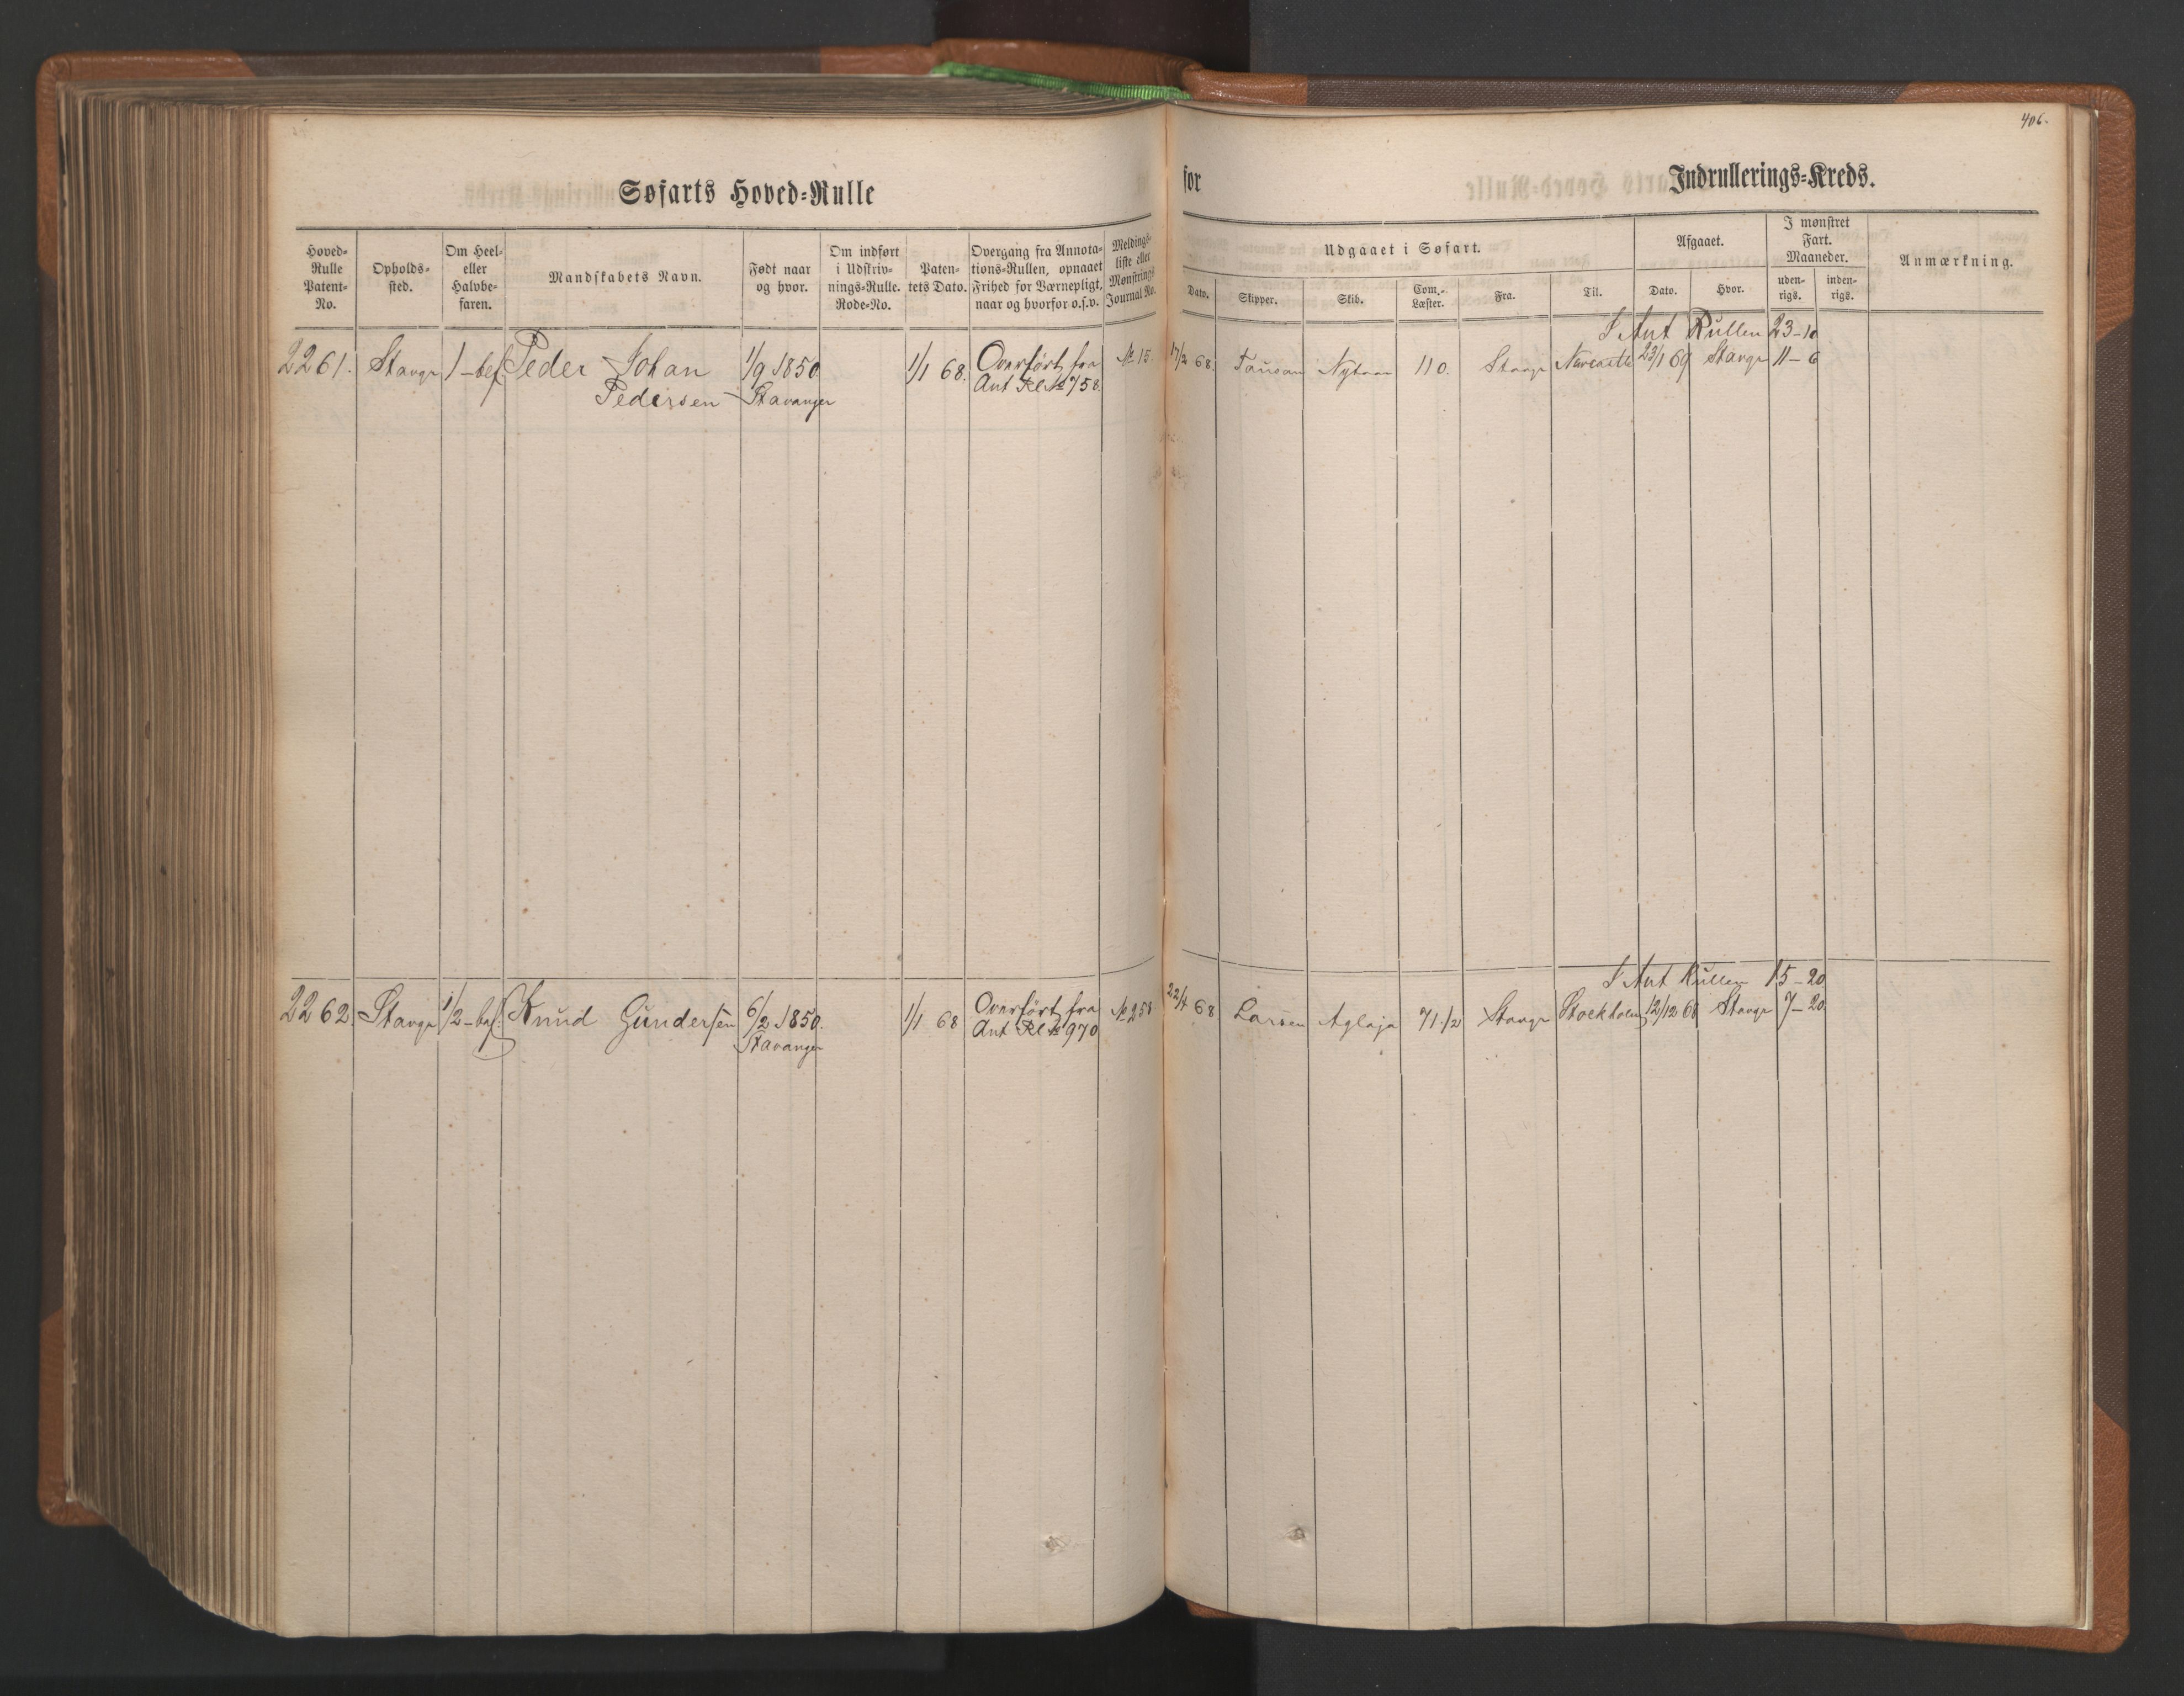 406.
Søfarts Hoved-Rulle
for
Indrullerings-Kreds.
Hoved-Rulle Patent-No.
Opholds-sted.
Om Heel- eller Halvbe-faren.
Mandskabets Navn.
Født naar og hvor.
Om indført i Udskriv-nings-Rulle. Rode-No.
Paten-tets Dato.
Overgang fra Annota-tions-Rullen, opnaaet Frihed for Værnepligt, naar og hvorfor o.s.v.
Meldings-liste eller Mønstrings Journal No.
Udgaaet i Søfart.
Dato.
Skipper.
Skib.
Com.-Læster.
Fra.
Til.
Afgaaet.
Dato.
Hvor.
I mønstret Fart. Maaneder.
uden-rigs.
inden-rigs.
Anmærkning.
I Ant Rullen 23-10
2261. Stavgr 1-bef Peder Johan 1/9 1850 1/1 68. Overført fra No 15. 17/2 68. 110. Stavgr 23/1 69 Stavgr 11-6
Pedersen Stavanger Ant Rl No 758
I Ant Rullen 15-20
2262. Stavgr 1/2-bef. Knud Gundersen 6/2 1850. 1/1 68 Overført fra No 258 22/4 68 Larsen Aglaja 71 1/2 Stavgr Stockholm 12/12 68 Stavgr 7-20
Stavanger Ant Rl No 970